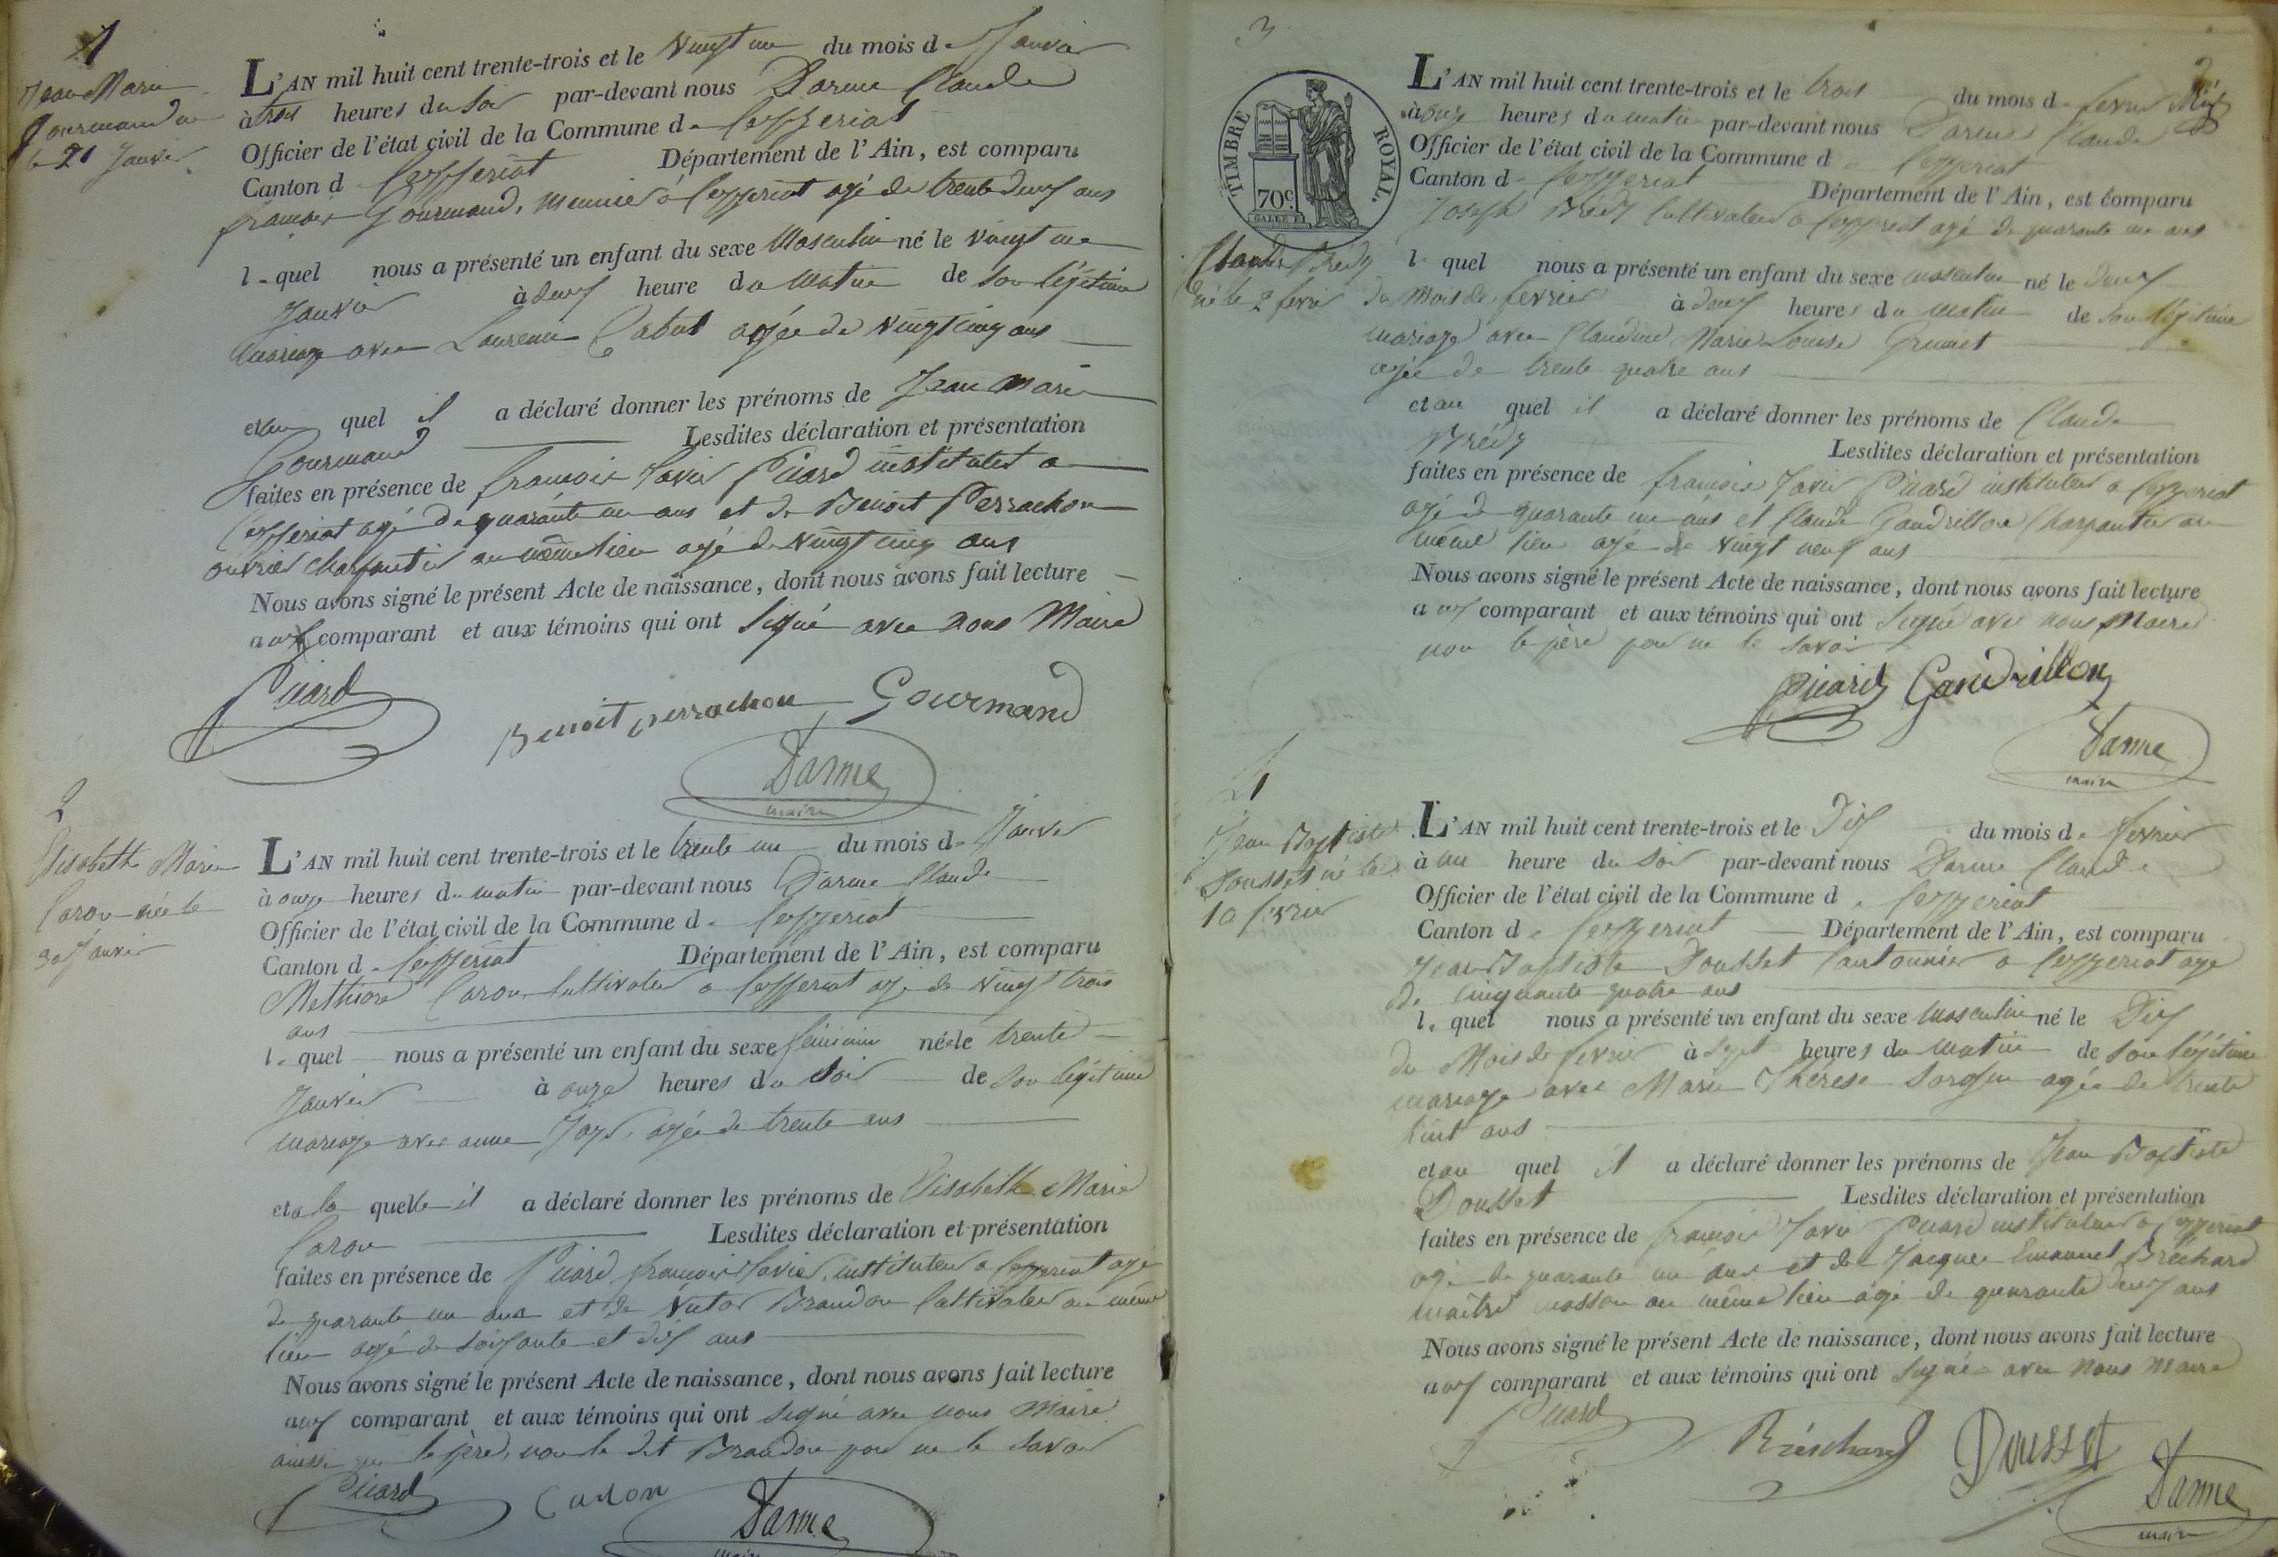 1
Jean Marie
Gourmand né
le 21 Janvier
L'AN mil huit cent trente-trois et le vingt un du mois de Janvier
à trois heures du soir par-devant nous Darme Claude
Officier de l'état civil de la Commune de Ceyzeriat
Canton de Ceyzeriat Département de l'Ain, est comparu
françois Gourmand, meunier à Ceyzeriat agé de trente deux ans
lequel nous a présenté un enfant du sexe Masculin né le vingt un
Janvier à deux heure du matin de son légitime
mariage avec Laurence Cabut agée de vingt cinq ans
et au quel il a déclaré donner les prénoms de Jean Marie
Gourmand Lesdites déclaration et présentation
faites en présence de françois Xavier Picard instituteur a
Ceyzeriat agé de quarante un ans et de Benoit Perrachon
ouvrier charpentier au même lieu agé de vingt cinq ans
Nous avons signé le présent Acte de naissance, dont nous avons fait lecture
aux comparant et aux témoins qui ont signé avec nous Maire
Picard Benoit perrachon Gourmand
Darme
maire
2
Elisabeth Marie
Caron née le
30 Janvier
L'AN mil huit cent trente-trois et le trente un du mois de Janvier
à onze heures du matin par-devant nous Darme Claude
Officier de l'état civil de la Commune de Ceyzeriat
Canton de Ceyzeriat Département de l'Ain, est comparu
Caron Cultivateur a Ceyzeriat agé de vingt trois
ans
lequel nous a présenté un enfant du sexe féminin née le trente
Janvier à onze heures du soir de son légitime
mariage avec anne agée de trente ans
et a la quelle il a déclaré donner les prénoms de Elisabeth Marie
Caron Lesdites déclaration et présentation
faites en présence de Picard françois Xavier, instituteur a Ceyzeriat agé
de quarante un ans et de Victor Brandon Cultivateur au même
lieu agé de soixante et dix ans
Nous avons signé le présent Acte de naissance, dont nous avons fait lecture
aux comparant et aux témoins qui ont signé avec nous Maire
ainsi que le père, non le dit Brandon pour ne le savoir
Picard Caron Darme
maire
3
2
TIMBRE ROYAL.
70c
Claude Brédy
né le 2 fevrier
L'AN mil huit cent trente-trois et le trois du mois de fevrier
à onze heures du matin par-devant nous Darme Claude
Officier de l'état civil de la Commune de Ceyzeriat
Canton de Ceyzeriat Département de l'Ain, est comparu
Joseph Brédy Cultivateur a Ceyzeriat agé de quarante un ans
lequel nous a présenté un enfant du sexe masculin né le deux
du Mois de fevrier à deux heures du matin de son légitime
mariage avec Claudine Marie Louise
agée de trente quatre ans
et au quel il a déclaré donner les prénoms de Claude
Brédy Lesdites déclaration et présentation
faites en présence de françois Xavier Picard instituteur a Ceyzeriat
agé de quarante un ans et Claude Gandrillon Charpentier au
même lieu agé de vingt neuf ans
Nous avons signé le présent Acte de naissance, dont nous avons fait lecture
aux comparant et aux témoins qui ont signé avec nous Maire
non le père pour ne le savoir
Picard Gandrillon
Darme
maire
4
Jean Baptiste
Dousset né le
10 fevrier
L'AN mil huit cent trente-trois et le Dix du mois de fevrier
à un heure du soir par-devant nous Darme Claude
Officier de l'état civil de la Commune de Ceyzeriat
Canton de Ceyzeriat Département de l'Ain, est comparu
Jean Baptiste Dousset Cantonnier a Ceyzeriat agé
de cinquante quatre ans
lequel nous a présenté un enfant du sexe masculin né le Dix
du Mois de fevrier à sept heures du matin de son légitime
mariage avec Marie Thérese agée de trente
huit ans
et au quel il a déclaré donner les prénoms de Jean Baptiste
Dousset Lesdites déclaration et présentation
faites en présence de françois Xavier Picard instituteur a Ceyzeriat
agé de quarante un ans et de Jacque Emanuel Bréchard
maître masson au même lieu agé de quarante deux ans
Nous avons signé le présent Acte de naissance, dont nous avons fait lecture
aux comparant et aux témoins qui ont signé avec nous Maire
Picard Bréschard Dousset
Darme
maire